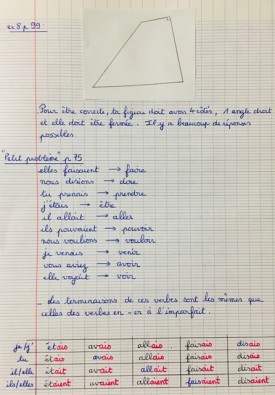 ex 8 p 99.
Pour être correcte, la figure doit avoir 4 côtés, 1 angle droit
et elle doit être fermée. Il y a beaucoup de réponses
possibles.
"Petit problème" p 75
elles faisaient → faire
nous disions → dire
tu prenais → prendre
j'étais → être
il allait → aller
ils pouvaient → pouvoir
nous voulions → vouloir
je venais → venir
vous aviez → avoir
elle voyait → voir
→ Les terminaisons de ces verbes sont les mêmes que
celles des verbes en -er à l'imparfait.
je/j' étais avais allais faisais disais
tu étais avais allais faisais disais
il/elle était avait allait faisait disait
ils/elles étaient avaient allaient faisaient disaient